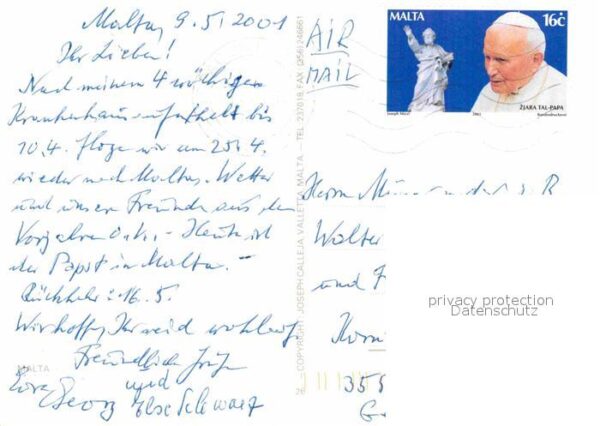 Malta, 9.5.2001
Ihr Lieben!
Nach meinem 4 wöchigen
Krankenhausaufenthalt bis
10.4. flogen wir am 25.4.
wieder nach Malta. Wetter
und unsere Freunde aus den
Vorjahren o.k. - Heute ist
der Papst in Malta. -
Rückkehr: 16.5.
Wir hoffen, Ihr seid wohlauf
Freundliche Grüße
Eure Georg und Else Schwarz
MALTA
COPYRIGHT JOSEPH CALLEJA VALLETTA MALTA - TEL 237018 FAX (356) 246661
AIR
MAIL
MALTA
16c
Joseph Mizzi
2001
ŻJARA TAL-PAPA
Printex Limited
Herrn
Walter
und F
355
privacy protection
Datenschutz